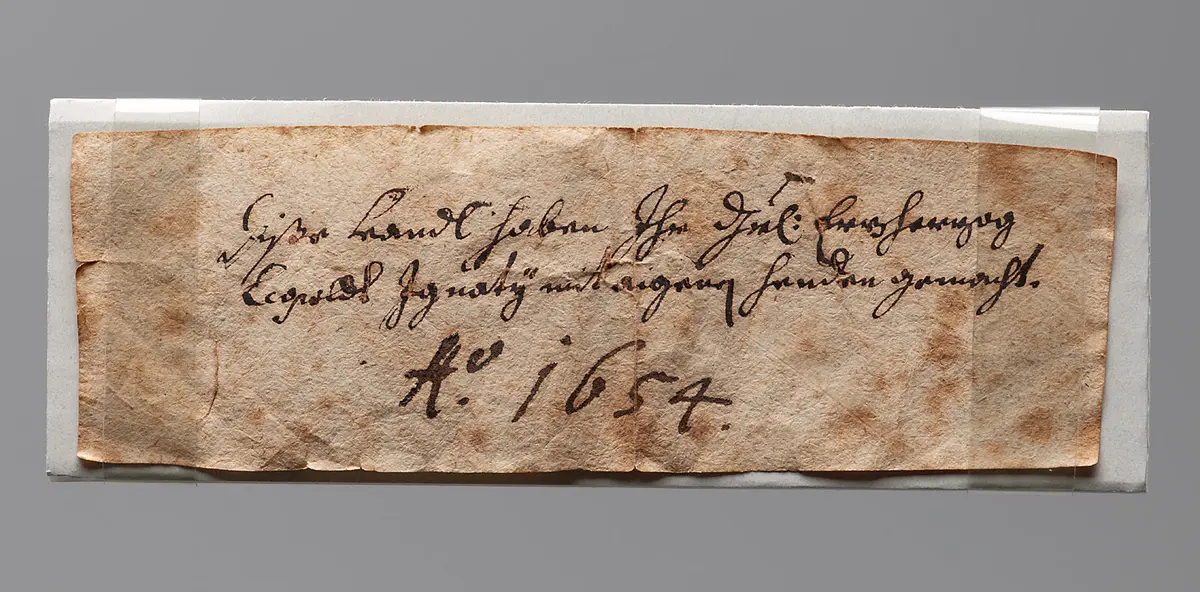 Diße Kandl haben Ihr Drhl: Ertzherzog
Leopoldt Ignatÿ mit aigenen henden gemacht.
Aº. 1654.